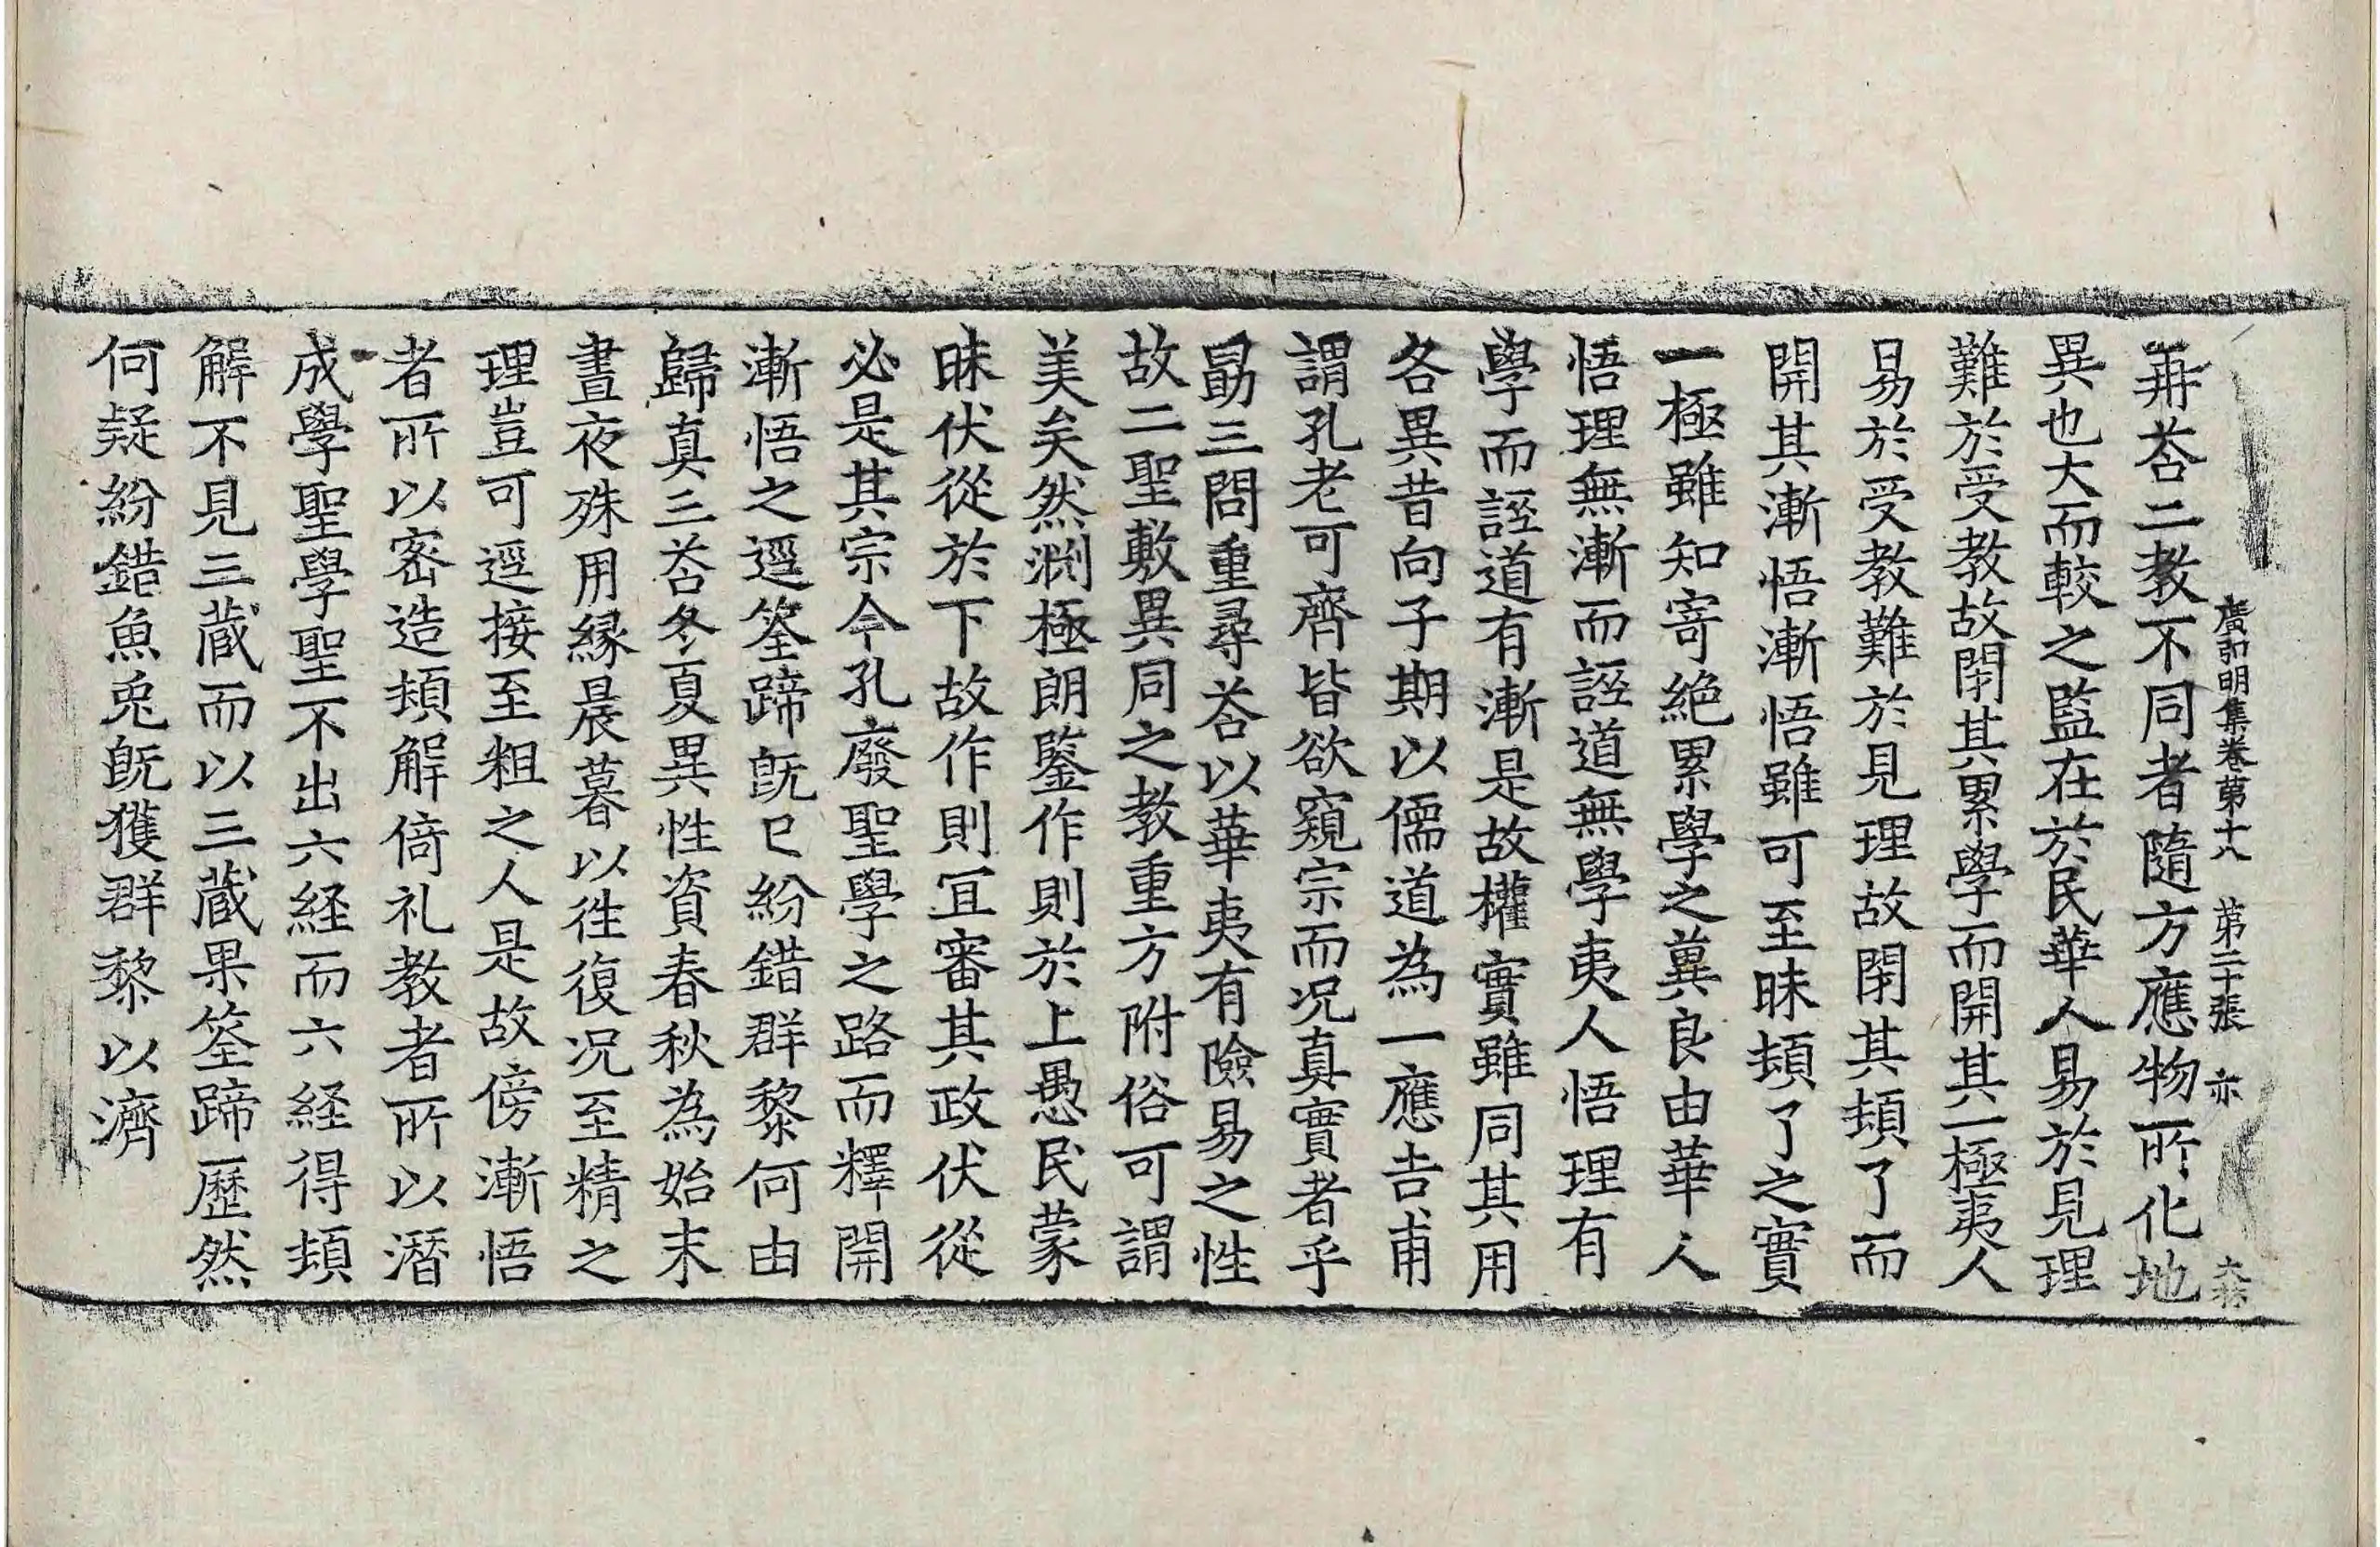 廣弘明集卷第十八 第二十張 亦
再荅二教不同者隨方應物所化地
異也大而較之監在於民華人易於見理
難於受教故閇其累學而開其一極夷人
易於受教難於見理故閇其頓了而
開其漸悟漸悟雖可至昧頓了之實
一極雖知寄絶累學之冀良由華人
悟理無漸而誣道無學夷人悟理有
學而誣道有漸是故權實雖同其用
各異昔向子期以儒道為一應吉甫
謂孔老可齊皆欲窺宗而况真實者乎
勗三問重尋荅以華夷有險易之性
故二聖敷異同之教重方附俗可謂
美矣然淵極朗鑒作則於上愚民蒙
昧伏從於下故作則冝審其政伏從
必是其宗今孔廢聖學之路而釋開
漸悟之逕筌蹄旣已紛錯群黎何由
歸真三荅冬夏異性資春秋為始末
晝夜殊用縁晨暮以徃復况至精之
理豈可逕接至粗之人是故傍漸悟
者所以密造頓解倚礼教者所以潛
成學聖學聖不出六経而六経得頓
解不見三蔵而以三蔵果筌蹄歷然
何疑紛錯魚兎旣獲群黎以濟